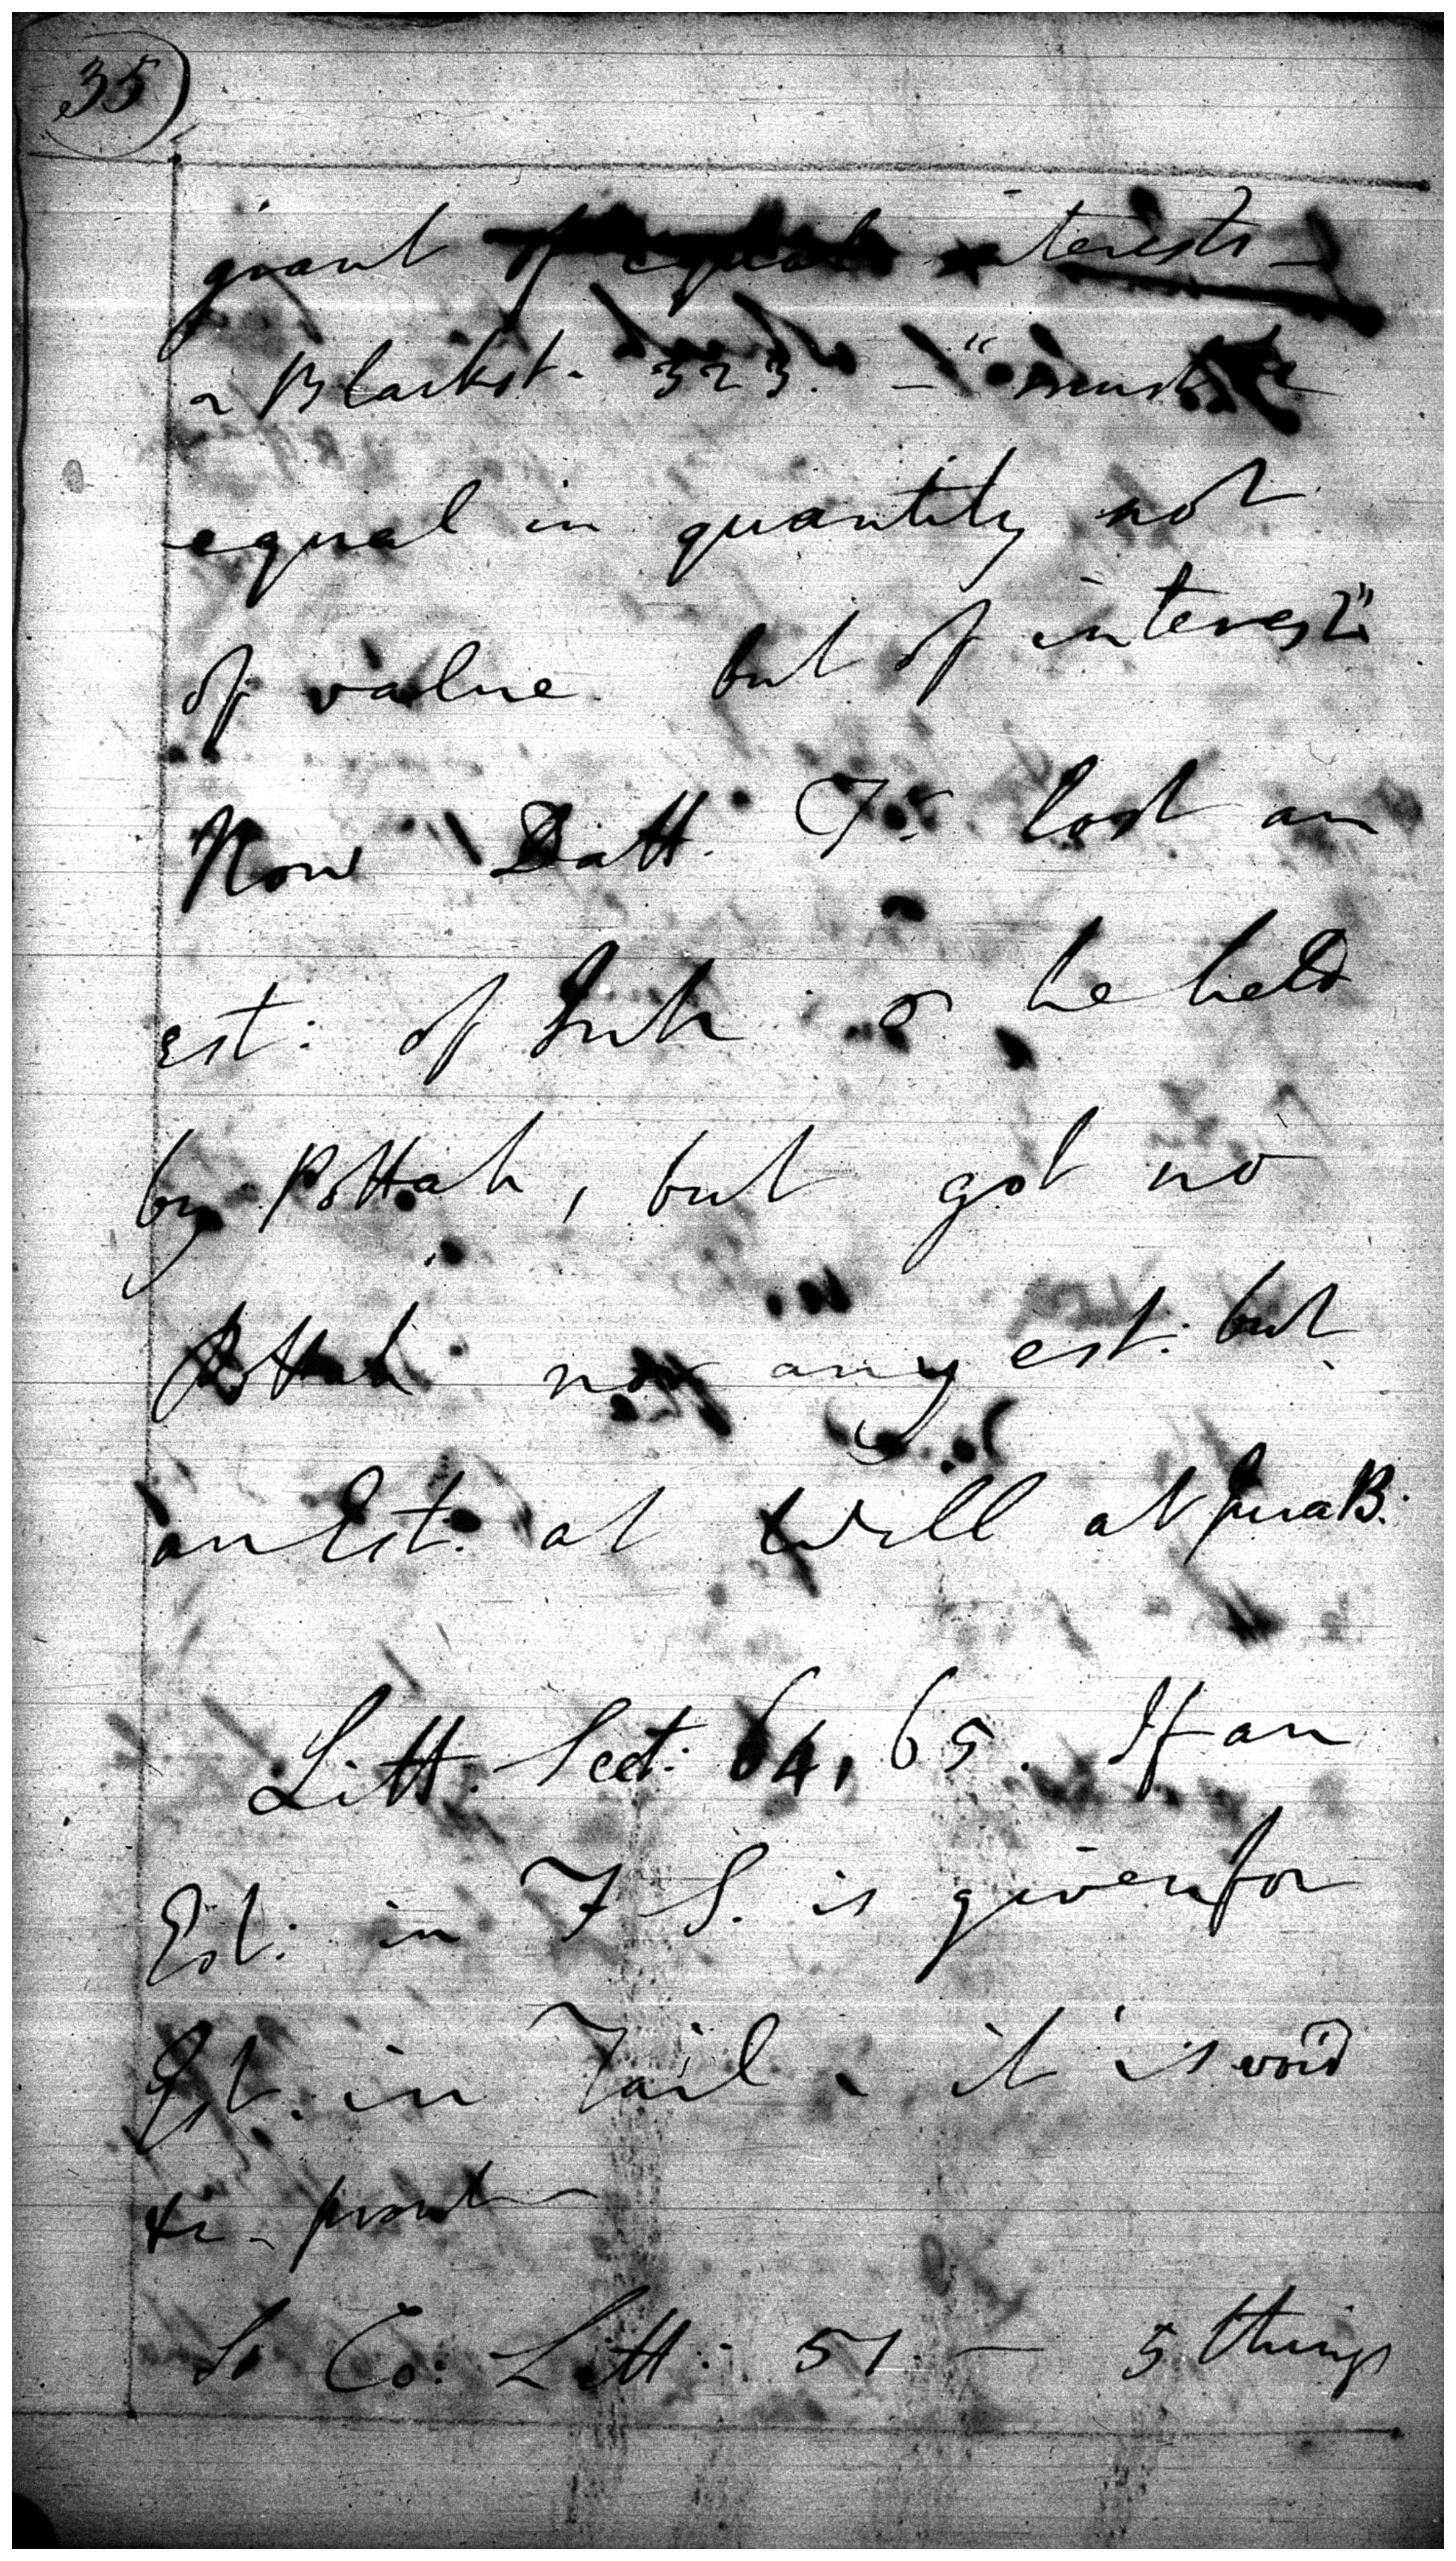 35
grant of equal interests —
2 Blackst. 323. — "must be
equal in quantity not
of value but of interest"
Now Datt. lost an
est: of Inh & he held
by Pottah, but got no
Pottah nor any est: but
an Est. at Will at
Litt. Sect: 64, 65. If an
Est: in F S. is given for
Est. in Tail - it is void
&c -
So Co: Litt: 51 — 5 things